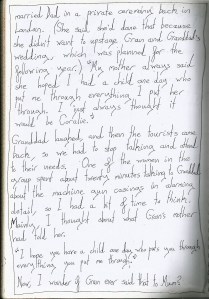 married Dad in a private ceremony back in
London. (She said she'd done that because
she didn't want to upstage Gran and Granddad's
wedding, which was planned for the
following year.) My mother always said
she hoped I had a child one day who
put me through everything I put her
through. I just always thought it
would be Coralie.
Granddad laughed, and then the tourists came
back, so we had to stop talking and attend
to their needs. One of the women in the
group spent about twenty minutes talking to Granddad
about the machine gun casings in alarming
detail, so I had a lot of time to think.
Mainly, I thought about what Gran's mother
had told her.
"I hope you have a child one day who puts you through
everything you put me through."
Now, I wonder if Gran ever said that to Mum?